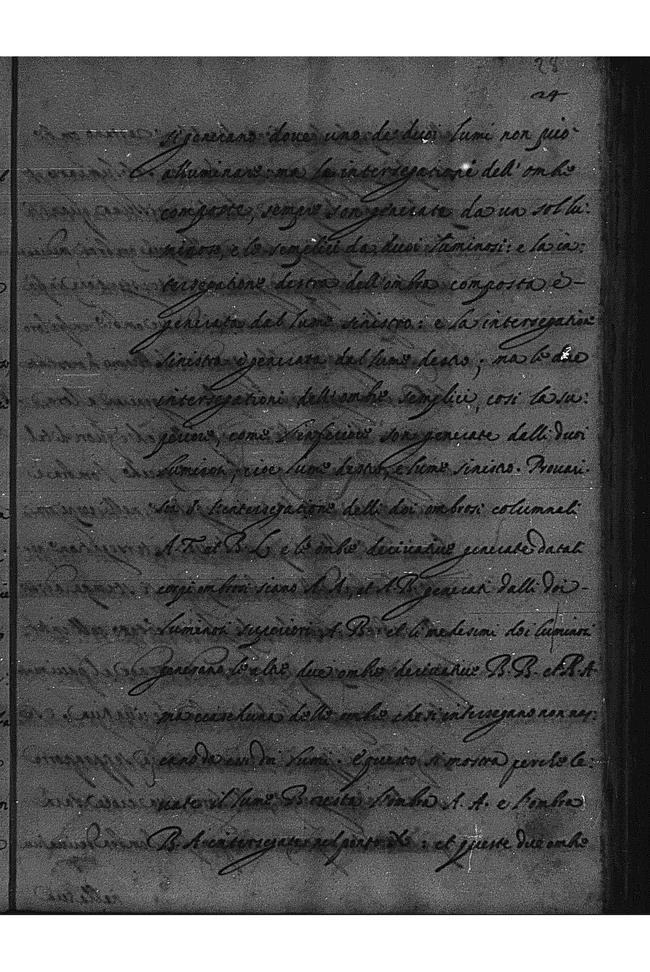 28
24
si generano dove uno de duoi lumi non può
alluminare: ma la intersegationé dell' ombre
composte, sempre son generate da un sol lu:
minoso, e le semplici da duoi luminosi: e la in:
tersegatione destra dell'ombra composta è-
generata dal lume sinistro: e la intersegatione
sinistra è generata dal lume destro; ma le due
intersegationi dell'ombre semplici, cosi la su:
periore, come l'inferiore son generate dalli duoi
luminosi, cioe lume destro, e lume sinistro. Provasi.
Sia l'intersegatione delli doi ombrosi columnali
A. F. et B. L. e le ombre dirivative generate da tali
corpi ombrosi siano A. A. et A. B. generati dalli doi-
luminosi superiori, A. B. et li medesimi doi luminosi
generano le altre due ombre dirivative B. B. et B. A
ma ciaschuna delle ombre che si intersegano non nas:
cano da essi du lumi. E questo si mostra perche le:
vato il lume B resta l'ombra A. A. e l'ombra
B. A. intersegate nel ponto : et queste due ombre